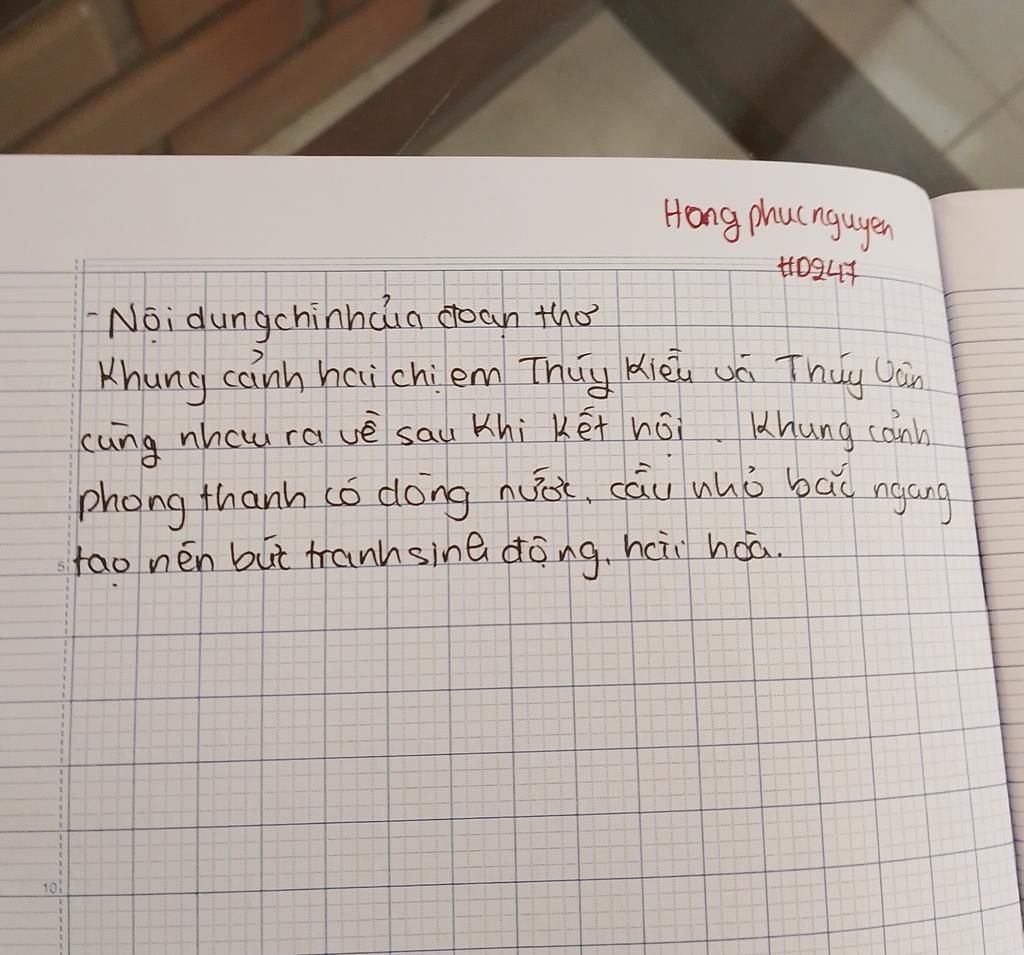 Hong phuc nguyen
#0247
- Nội dung chính của đoạn thơ
Khung cảnh hai chị em Thúy Kiều và Thúy Vân
cùng nhau ra về sau khi kết hội. Khung cảnh
phong thanh có dòng nước, cầu nhỏ bắc ngang
tạo nên bức tranh sinh động, hài hòa.
5
10